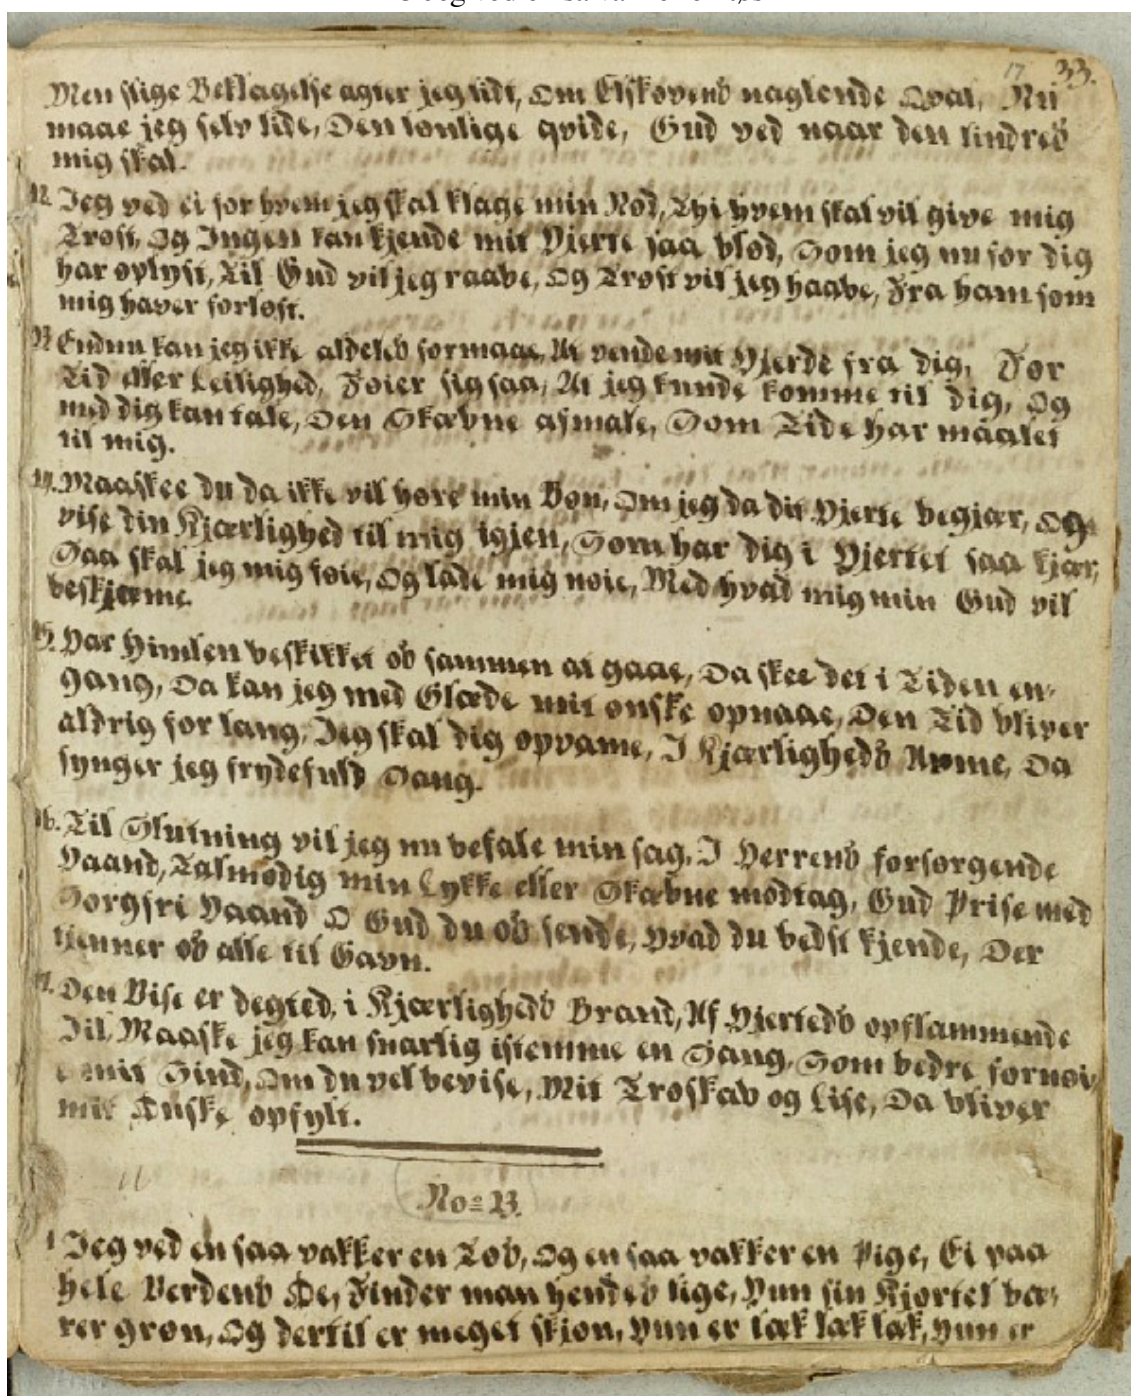 17 33.
Men slige Beklagelse agter jeg lidt, Om Elskovens naglende Qval, Nu
maae jeg selv lide, Den lønlige qvide, Gud ved naar den lindres
mig skal.
12. Jeg ved ei for hvem jeg skal klage min Nød, Thi hvem skal vil give mig
Trøst, Og Ingen kan kjende mit Hjerte saa blød, Som jeg nu for dig
har oplyst, Til Gud vil jeg raabe, Og Trøst vil jeg haabe, Fra ham som
mig haver forløst.
13 Endnu kan jeg ikke aldeles formaae, At vende mit Hjerde fra dig, For
Tid eller Leilighed, Føier sig saa, At jeg kunde komme til dig, Og
med dig kan tale, Den Skæbne afmale, Som Tide har maalet
til mig.
14. Maaskee du da ikke vil høre min Bøn, Om jeg da dit Hjerte begjær, Og
vise din Kjærlighed til mig igjen, Som har dig i Hjertet saa kjær,
Saa skal jeg mig føie, Og lade mig nøie, Med hvad mig min Gud vil
beskjærme.
15. Har Himlen beskikket os sammen at gaae, Da skee det i Tiden en-
gang, Da kan jeg med Glæde mit ønske opnaae, Den Tid bliver
aldrig for lang, Jeg skal dig opvame, I Kjærligheds Arme, Da
synger jeg frydefuld Sang.
16. Til Slutning vil jeg nu befale min sag, I Herrens forsørgende
Haand, Talmodig min Lykke eller Skæbne modtag, Gud Prise med
Sorgfri Haand O Gud du os sende, Hvad du bedst kjende, Der
tjenner os alle til Gavn.
17. Den Vise er degted, i Kjærligheds Brand, Af Hjerteds opflammende
Ild, Maaske jeg kan snarlig istemme en Sang, Som bedre fornøi,
mit Sind, Om du vel bevise, Mit Troskab og Lise, Da bliver
mit Ønske opfylt.
11
No = 23.
1 Jeg ved en saa vakker en Tøs, Og en saa vakker en Pige, Ei paa
hele Verdens Øe, Finder man hendes lige, Hun sin Kjortel bæ,
rer grøn, Og dertil er meget skjøn, Hun er læk læk læk, Hun er